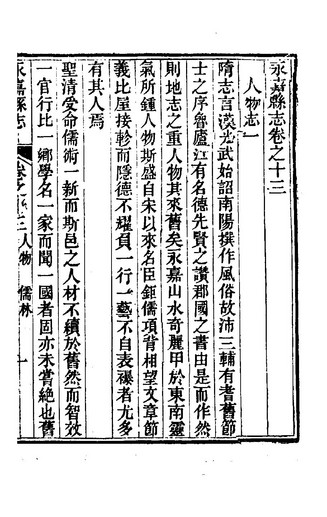 永嘉縣志卷之十三
人物志一
隋志言漢光武始詔南陽撰作風俗故沛三輔有耆舊節
士之序魯廬江有名德先賢之讚郡國之書由是而作然
則地志之重人物其來舊矣永嘉山水奇麗甲於東南靈
氣所鍾人物斯盛自宋以來名臣鉅儒項背相望文章節
義比屋接軫而隱德不耀員一行一藝不自表襮者尤多
有其人焉
聖清受命儒術一新而斯邑之人材不續於舊然而智效
一官行比一鄉學名一家而聞一國者固亦未嘗絶也舊
永嘉縣志
卷之十三人物
儒林
一